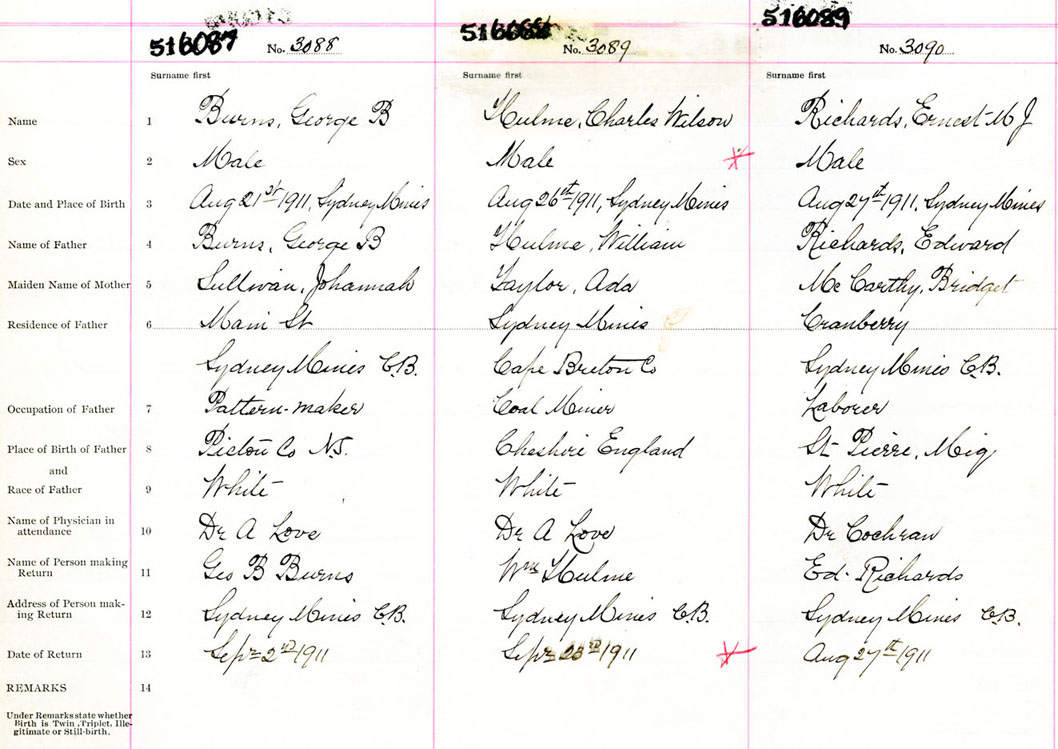 516087 No. 3088 No. 3089 516089 No. 3090
Surname first Surname first Surname first
Name 1 Burns, George B Hulme, Charles Wilson Richards, Ernest M J
Sex 2 Male Male Male
Date and Place of Birth 3 Aug 21st 1911, Sydney Mines Aug 26th 1911, Sydney Mines Aug 27th 1911, Sydney Mines
Name of Father 4 Burns, George B Hulme, William Richards, Edward
Maiden Name of Mother 5 Sullivan, Johannah Taylor, Ada Mc Carthy, Bridget
Residence of Father 6 Main St Sydney Mines Cranberry
Sydney Mines C.B. Cape Breton Co Sydney Mines C.B.
Occupation of Father 7 Pattern-maker Coal Miner Laborer
Place of Birth of Father 8 Pictou Co N.S. Cheshire England St Pierre, Miq
and
Race of Father 9 White White White
Name of Physician in
attendance 10 Dr A Love Dr A Love Dr Cochran
Name of Person making
Return 11 Geo B Burns Wm Hulme Ed. Richards
Address of Person mak-
ing Return 12 Sydney Mines C.B. Sydney Mines C.B. Sydney Mines C.B.
Date of Return 13 Sept 2nd 1911 Sept 1911 Aug 27th 1911
REMARKS 14
Under Remarks state whether
Birth is Twin, Triplet, Ille-
gitimate or Still-birth.